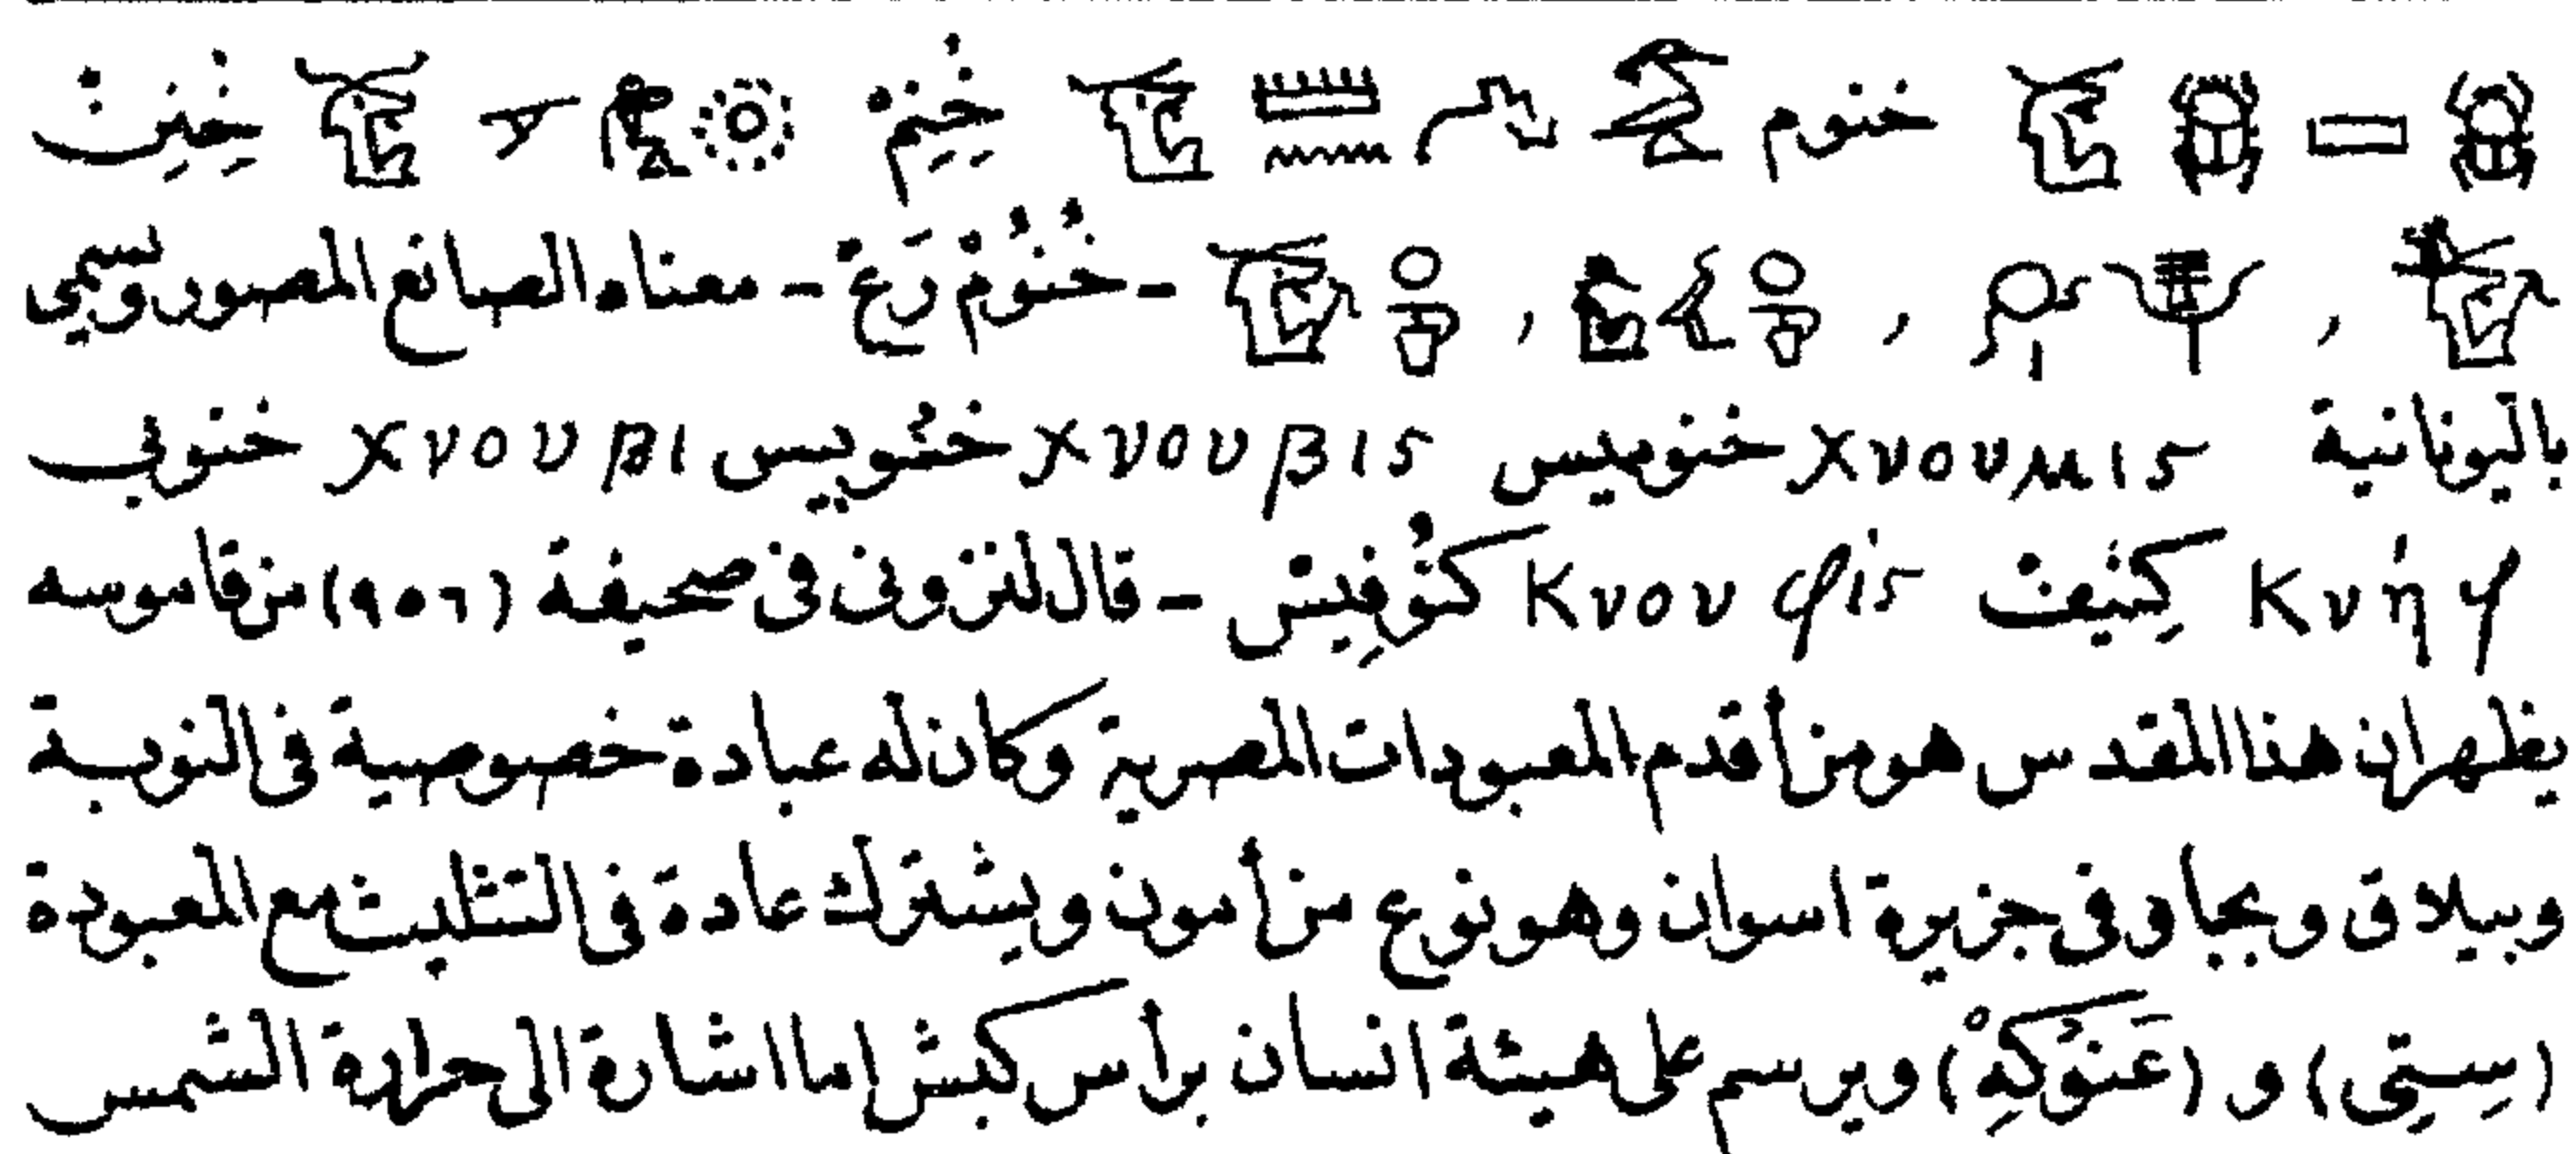 خنوم خِنِمْ خِنِفْ
- خُنُومْ رَعْ - معناه الصانع المصور ويسمى
باليونانية Χνουμις خنوميس Χνουβις خنُوبيس Χνουβι خنوبى
Κνήφ كِنيفْ Κνουφίς كنُوفِيسْ - قال لنزونى فى صحيفة (٩٥٦) من قاموسه
يظهر ان هذا المقدس هو من أقدم المعبودات المصرية وكان له عبادة خصوصية فى النوبة
وبيلاق وبجاو فى جزيرة اسوان وهو نوع من أمون ويشترك عادة فى التثليث مع المعبودة
(سِتِى) و (عَنوُكِهْ) ويرسم على هيئة انسان برأس كبش اما اشارة الى حرارة الشمس